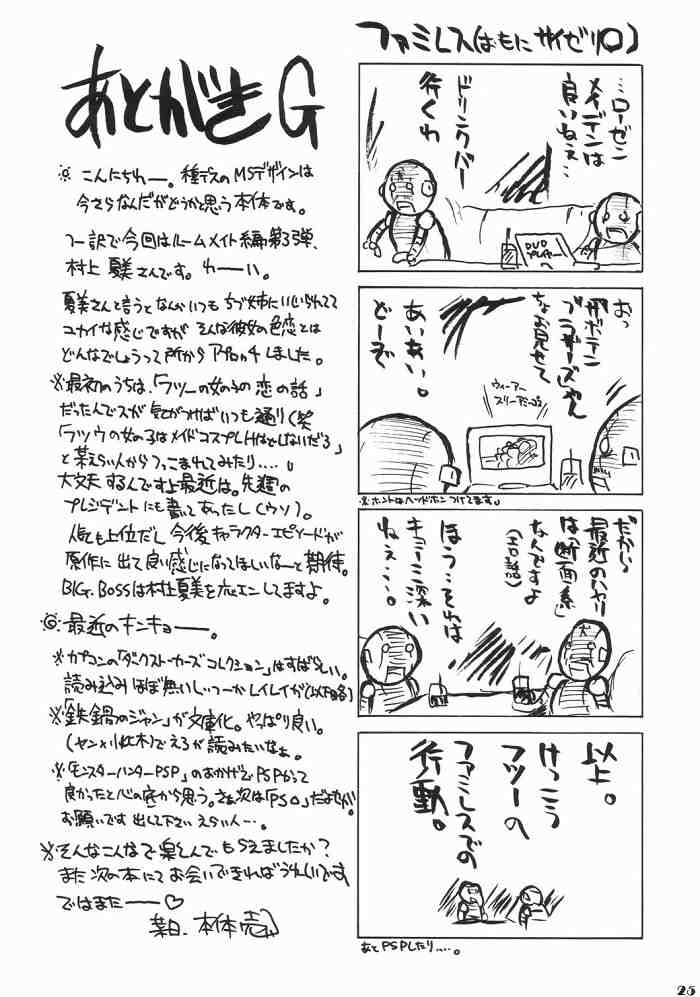 あとがきG
こんにちわー。種デスのMSデザインは
今さらなんだがどうかと思う本体です。
つー訳で今回はルームメイト編第3弾、
村上 夏美さんです。わーい。
夏美さんと言うとなんかいつも ちづ姉にいじられてて
ユカイな感じですが そんな彼女の色恋とは
どんなでしょうって所から アプローチしました。
※最初のうちは、「フツーの女の子の恋の話」
だったんでスが 気がつけばいつも通り(笑
「フツウの女の子はメイドコスプレHはしないだろ」
と某えらい人からつっこまれてみたり・・・・。
大丈夫 するんですよ最近は。先週の
プレジデントにも書いてあったし(ウソ)。
人気も上位だし 今後 キャラクターエピソードが
原作に 出て良い感じになってほしいなーと 期待。
BIG.BOSSは村上夏美を応エンしてますよ。
◎最近のキンキョー。
※カプコンの「ダークストーカーズ コレクション」はすばらしい。
読み込み ほぼ無いしっつーか レイレイが(以下略)
※「鉄鍋のジャン」が文庫化。やっぱり良い。
でえろが読みたいなぁ。
※「モンスターハンターPSP」のおかげでPSPかって
良かったと心の底から思う。さぁ次は「PS○」だよせがた
お願いです 出して下さい えらい人ー。
※そんなこんなで楽しんでもらえましたか?
また 次の本にて お会いできればうれしいです
ではまたー♡
某日.本体 売
ファミレス(おもに サイゼリ○)
…ローゼン
メイデンは
良いねぇ…
ドリンクバー
行くわ
DVD
プレイヤーへ
おっ
「サボテン
ブラザーズ」じゃん
ちょお見せて
あいあい。
どーぞ
ウィーアー
スリーアミーゴス
※ホントはヘッドホン つけてます。
だから
最近のハヤリ
は「断面系」
なんですよ
(エロ話)
ほう‥それは
キョーミ深い
ねぇ・・・
以上。
けっこう
フツーの
ファミレスでの
行動。
あとPSPしたり・・・・。
25